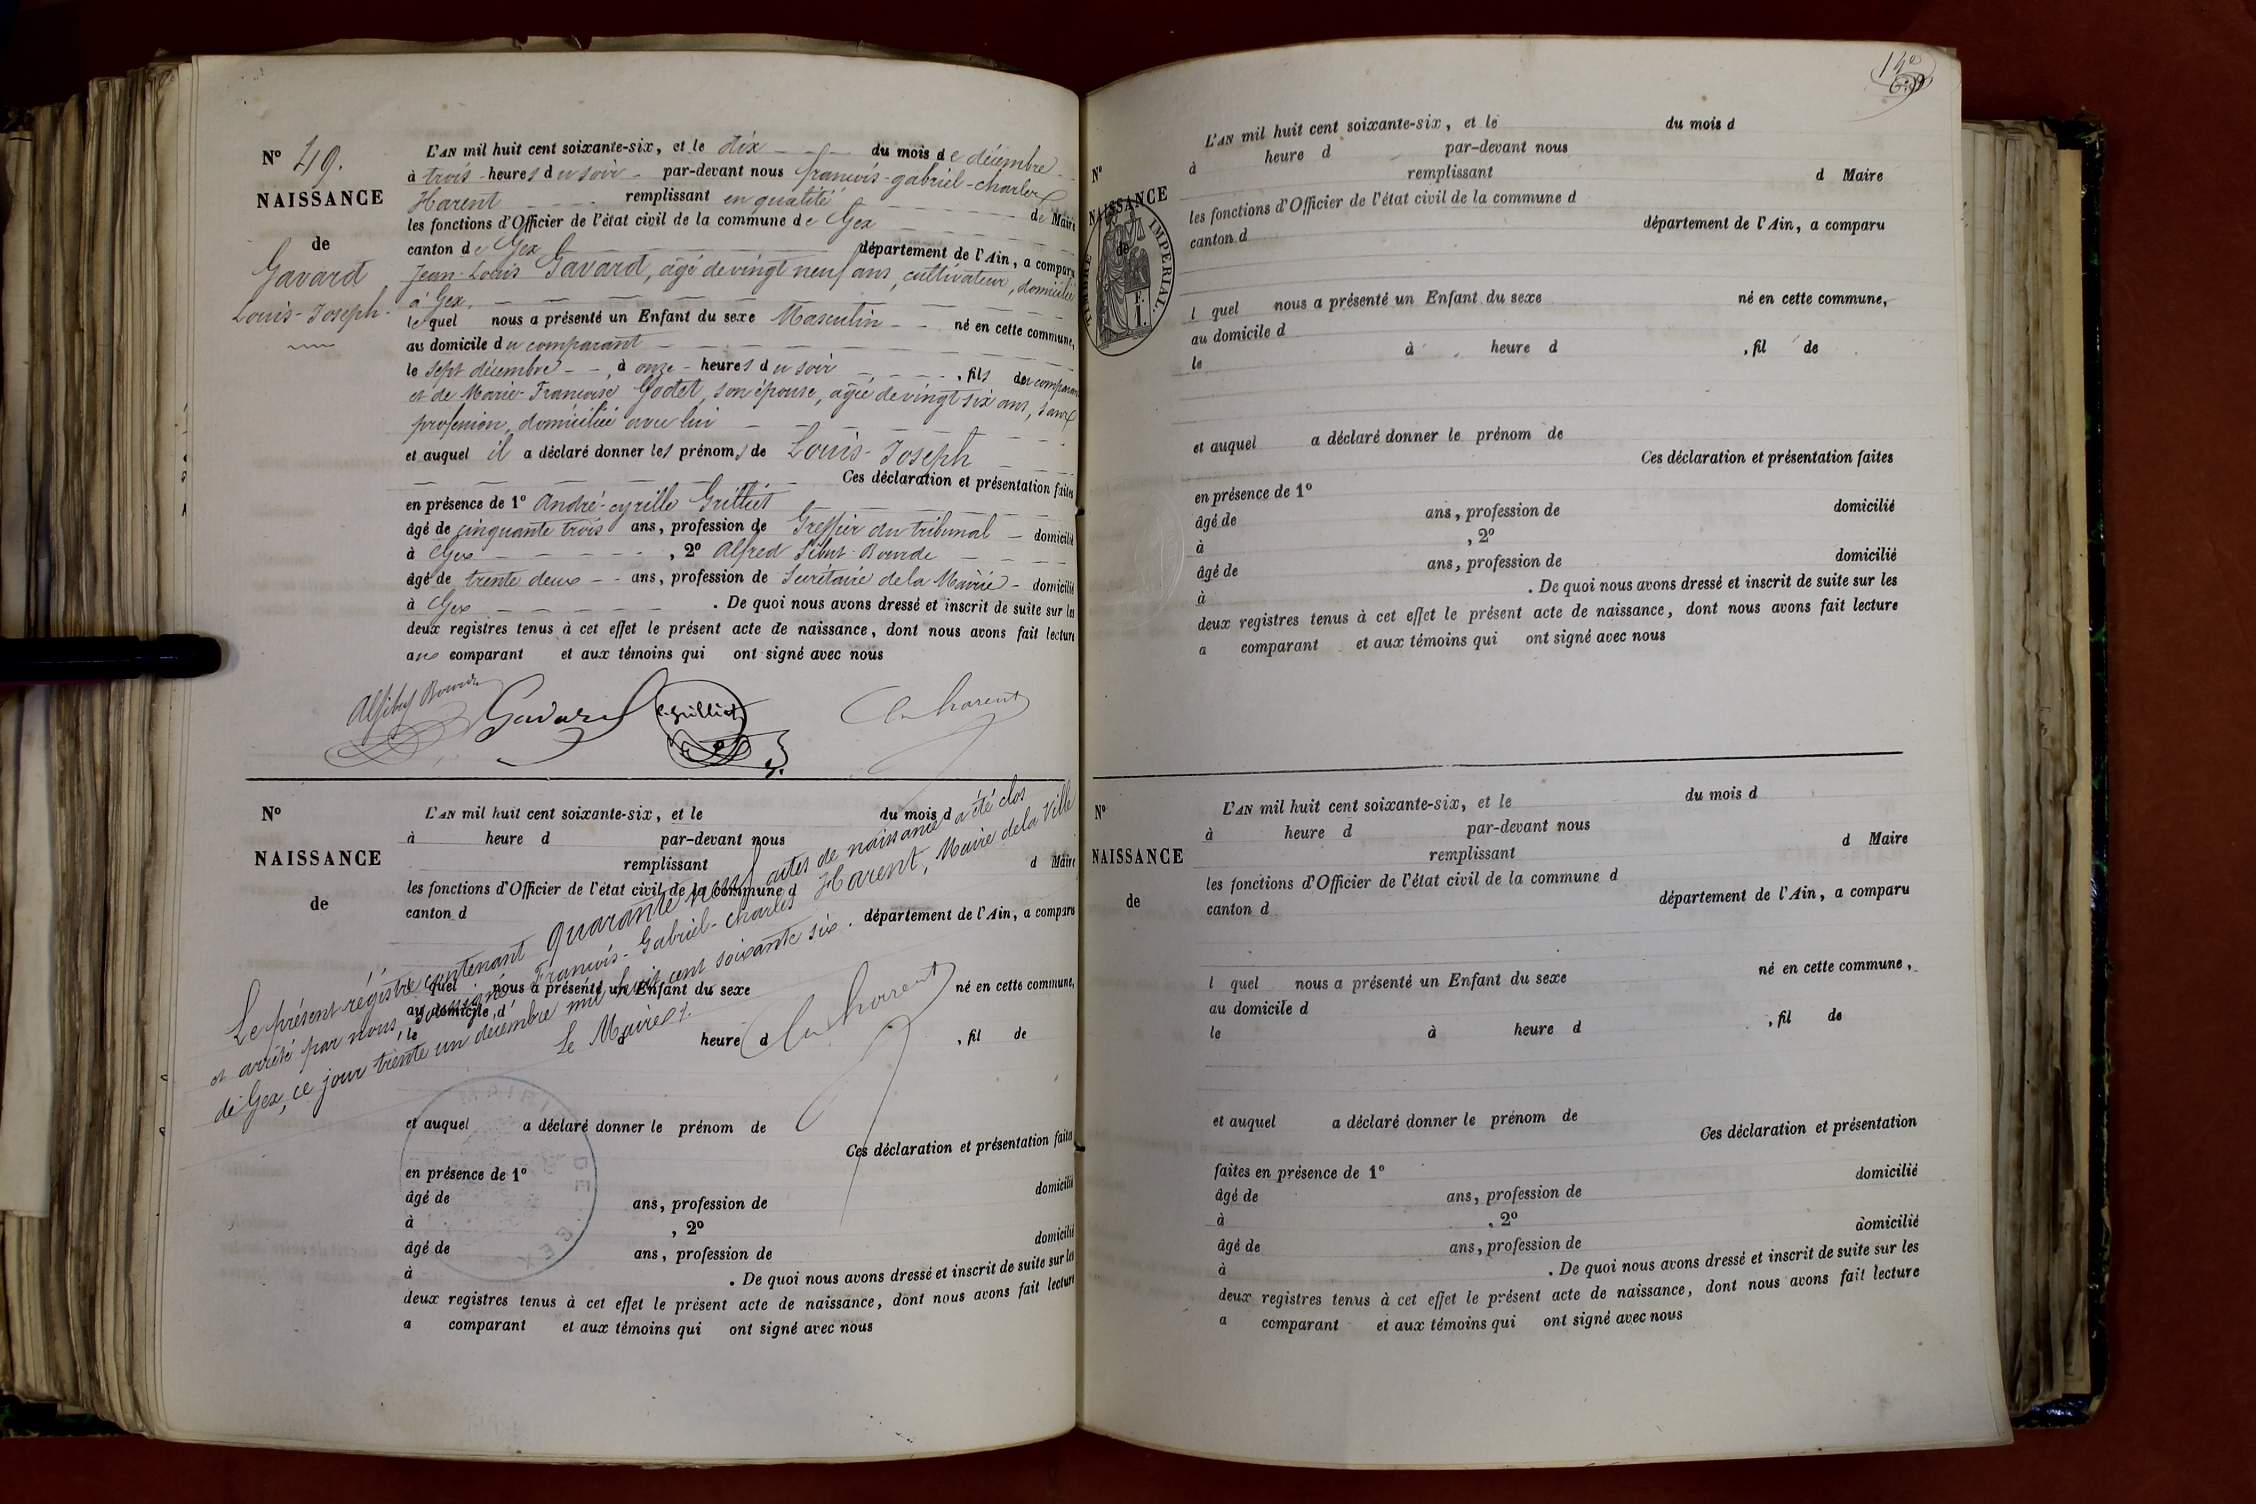 N° 49.
NAISSANCE
de
Gavard
Louis-Joseph.
L'AN mil huit cent soixante-six, et le dix du mois de décembre
à trois heures du soir par-devant nous françois-gabriel-charles
Harent remplissant en qualité de Maire
les fonctions d'Officier de l'état civil de la commune de Gex
canton de Gex département de l'Ain, a comparu
Jean-Louis Gavard, âgé de vingt neuf ans, cultivateur, domicilié
à Gex,
lequel nous a présenté un Enfant du sexe Masculin né en cette commune,
au domicile du comparant
le sept décembre, à onze heures du soir, fils du comparant
et de Marie-Françoise Godet, son épouse, âgée de vingt six ans, sans
profession, domiciliée avec lui
et auquel il a déclaré donner les prénoms de Louis-Joseph
Ces déclaration et présentation faites
en présence de 1° André-cyrille Grilliet
âgé de cinquante trois ans, profession de Greffier du tribunal domicilié
à Gex, 2° Alfred Bourde
âgé de trente deux ans, profession de Secrétaire de la Mairie domicilié
à Gex. De quoi nous avons dressé et inscrit de suite sur les
deux registres tenus à cet effet le présent acte de naissance, dont nous avons fait lecture
aux comparant et aux témoins qui ont signé avec nous
Bourde Gavard Grilliet Ch harent
N°
NAISSANCE
de
L'AN mil huit cent soixante-six, et le du mois d
à heure d par-devant nous
remplissant d Maire
les fonctions d'Officier de l'état civil de la commune d
canton d département de l'Ain, a comparu
l quel nous a présenté un Enfant du sexe né en cette commune,
au domicile d
le à heure d , fil de
Le présent régistre contenant quarante neuf actes de naissance a été clos
et arrêté par nous soussigné François-Gabriel-charles Harent, Maire de la Ville
de Gex, ce jour trente un décembre mil huit cent soixante six.
Le Maire
Ch harent
et auquel a déclaré donner le prénom de
Ces déclaration et présentation faites
en présence de 1°
âgé de ans, profession de domicilié
à , 2°
âgé de ans, profession de domicilié
à . De quoi nous avons dressé et inscrit de suite sur les
deux registres tenus à cet effet le présent acte de naissance, dont nous avons fait lecture
a comparant et aux témoins qui ont signé avec nous
DE GEX
N°
NAISSANCE
de
TIMBRE IMPERIAL.
L'AN mil huit cent soixante-six, et le du mois d
à heure d par-devant nous
remplissant d Maire
les fonctions d'Officier de l'état civil de la commune d
canton d département de l'Ain, a comparu
l quel nous a présenté un Enfant du sexe né en cette commune,
au domicile d
le à heure d , fil de
et auquel a déclaré donner le prénom de
Ces déclaration et présentation faites
en présence de 1°
âgé de ans, profession de domicilié
à , 2°
âgé de ans, profession de domicilié
à . De quoi nous avons dressé et inscrit de suite sur les
deux registres tenus à cet effet le présent acte de naissance, dont nous avons fait lecture
a comparant et aux témoins qui ont signé avec nous
N°
NAISSANCE
de
L'AN mil huit cent soixante-six, et le du mois d
à heure d par-devant nous
remplissant d Maire
les fonctions d'Officier de l'état civil de la commune d
canton d département de l'Ain, a comparu
l quel nous a présenté un Enfant du sexe né en cette commune,
au domicile d
le à heure d , fil de
et auquel a déclaré donner le prénom de
Ces déclaration et présentation
faites en présence de 1° domicilié
âgé de ans, profession de
à , 2°
âgé de ans, profession de domicilié
à . De quoi nous avons dressé et inscrit de suite sur les
deux registres tenus à cet effet le présent acte de naissance, dont nous avons fait lecture
a comparant et aux témoins qui ont signé avec nous